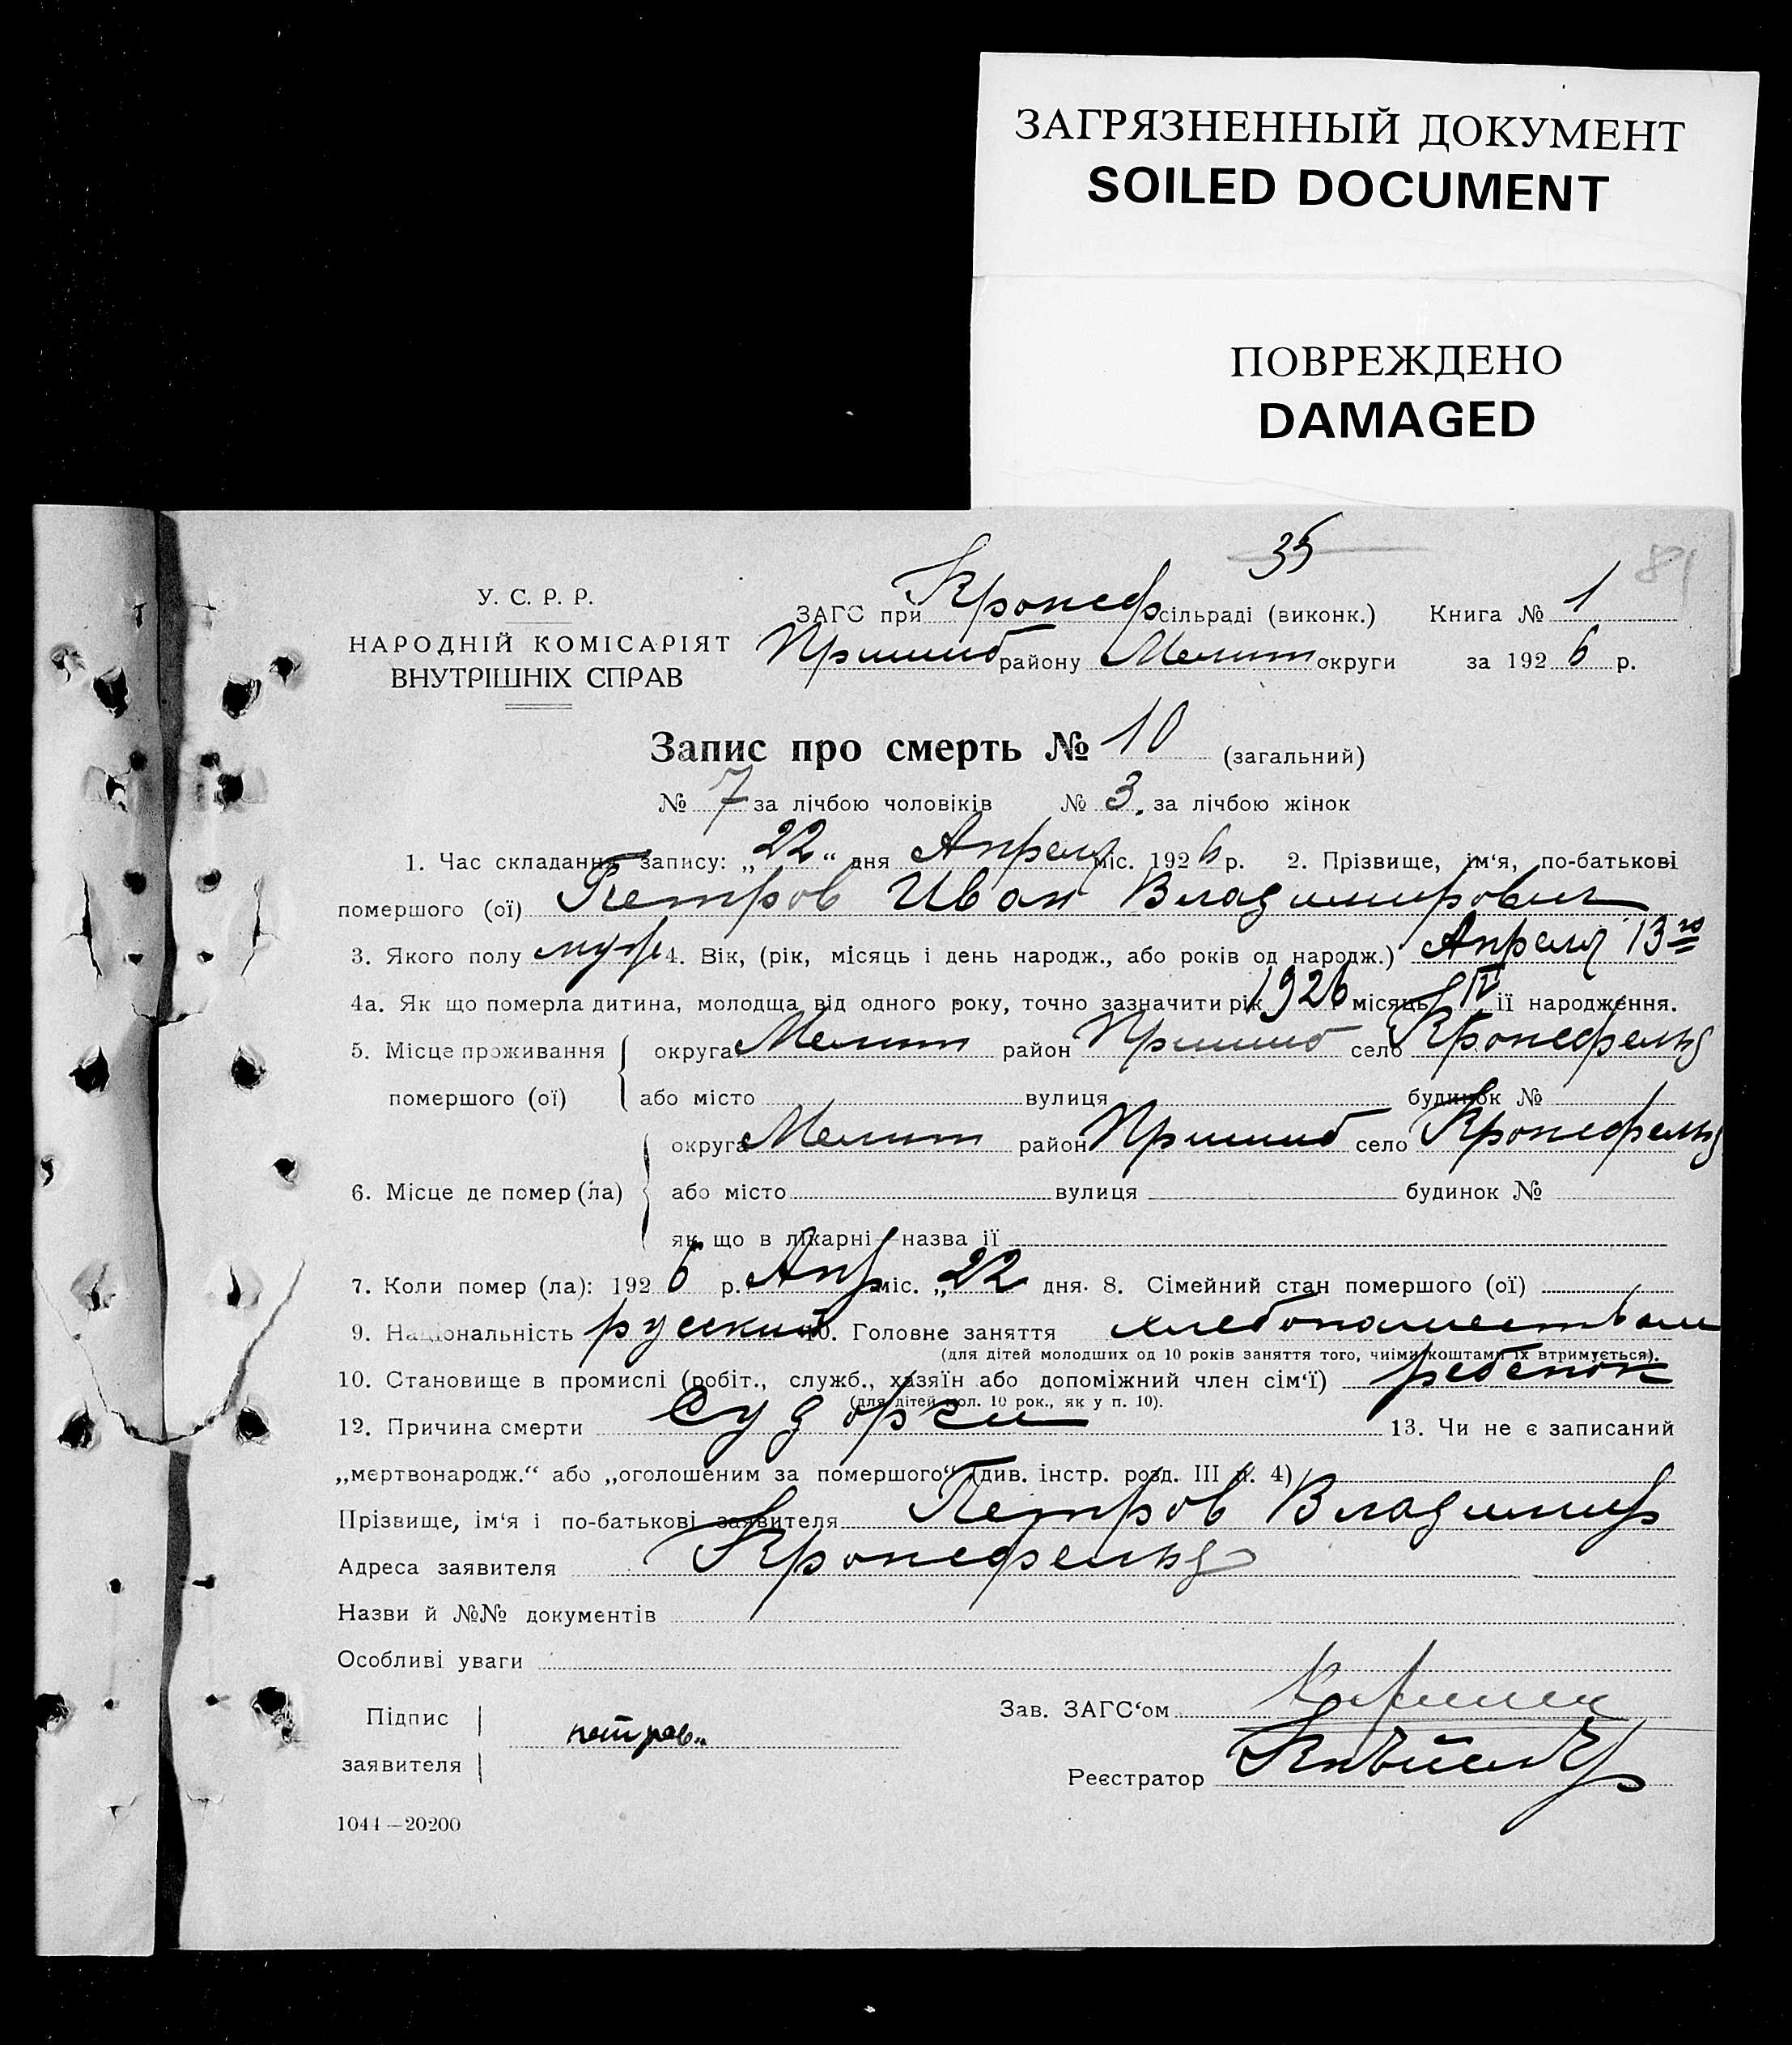 ЗАГРЯЗНЕННЫЙ ДОКУМЕНТ
SOILED DOCUMENT
ПОВРЕЖДЕНО
DAMAGED
35
81
У. С. Р. Р.
НАРОДНІЙ КОМІСАРІЯТ
ВНУТРІШНІХ СПРАВ
ЗАГС при Кронеф сільраді (виконк.) Книга № 1
Пришиб району Мелит округи за 1926 р.
Запис про смерть № 10 (загальний)
№ 7 за лічбою чоловіків № 3 за лічбою жінок
1. Час складання запису: „22“ дня Апреля міс. 1926 р. 2. Прізвище, ім‘я, по-батькові
помершого (ої) Петров Иван Владимирович
3. Якого полу муж 4. Вік, (рік, місяць і день народж., або років од народж.) Апреля 13го
4а. Як що померла дитина, молодща від одного року, точно зазначити рік 1926 місяць IV її народження.
5. Місце проживання помершого (ої) округа Мелит район Пришиб село Кронефельд
або місто вулиця будинок №
6. Місце де помер (ла) округа Мелит район Пришиб село Кронефельд
або місто вулиця будинок №
як що в лікарні—назва її
7. Коли помер (ла): 1926 р. Апр міс. „22 дня. 8. Сімейний стан помершого (ої)
9. Національність русский 10. Головне заняття хлебопашеством
(для дітей молодших од 10 років заняття того, чиїми коштами їх втримується).
10. Становище в промислі (робіт., служб., хазяїн або допоміжний член сім‘ї) ребенок
(для дітей мол. 10 рок., як у п. 10).
12. Причина смерти Судорги 13. Чи не є записаний
„мертвонародж.“ або „оголошеним за помершого“ (див. інстр. розд. III п. 4)
Прізвище, ім‘я і по-батькові заявителя Петров Владимир
Адреса заявителя Кронефельд
Назви й №№ документів
Особливі уваги
Підпис заявителя петров
Зав. ЗАГС‘ом
Реєстратор
1044—20200